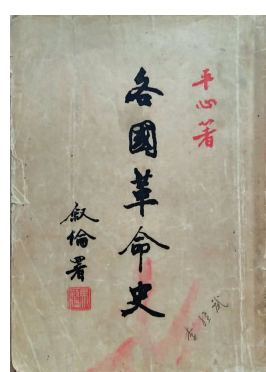 平心著
各國革命史
叙倫署